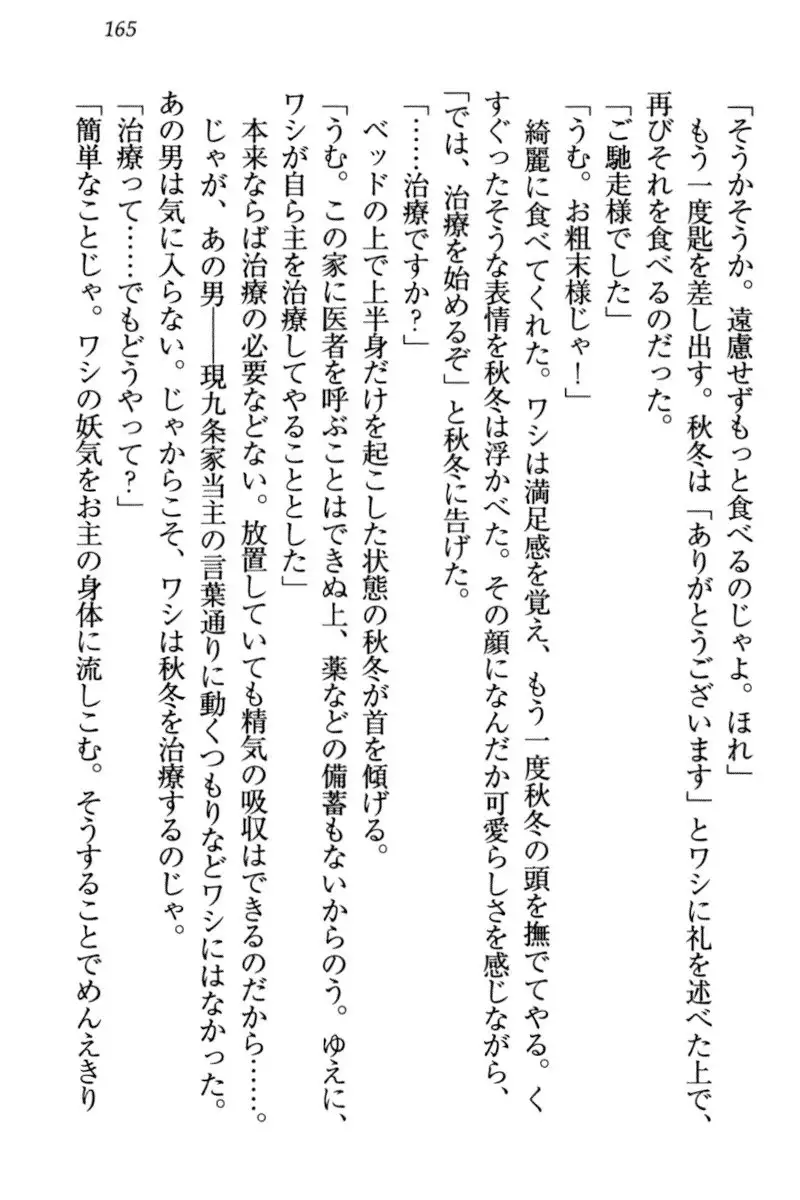 165
「そうかそうか。遠慮せずもっと食べるのじゃよ。ほれ」
もう一度匙を差し出す。秋冬は「ありがとうございます」とワシに礼を述べた上で、
再びそれを食べるのだった。
「ご馳走様でした」
「うむ。お粗末様じゃ！」
綺麗に食べてくれた。ワシは満足感を覚え、もう一度秋冬の頭を撫でてやる。く
すぐったそうな表情を秋冬は浮かべた。その顔になんだか可愛らしさを感じながら、
「では、治療を始めるぞ」と秋冬に告げた。
「……治療ですか？」
ベッドの上で上半身だけを起こした状態の秋冬が首を傾げる。
「うむ。この家に医者を呼ぶことはできぬ上、薬などの備蓄もないからのう。ゆえに、
ワシが自ら主を治療してやることとした」
本来ならば治療の必要などない。放置していても精気の吸収はできるのだから……。
じゃが、あの男――現九条家当主の言葉通りに動くつもりなどワシにはなかった。
あの男は気に入らない。じゃからこそ、ワシは秋冬を治療するのじゃ。
「治療って……でもどうやって？」
「簡単なことじゃ。ワシの妖気をお主の身体に流しこむ。そうすることでめんえきり